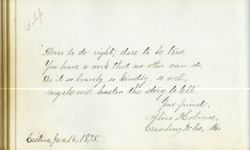 "Dare to do right, dare to be true,
You have a work that no other can do,
Do it so bravely, so kindly, so well,
Angels will hasten the story to tell."
Your friend,
Holmes,
Cranberry Isles, Me
Jan. 16, 1895.